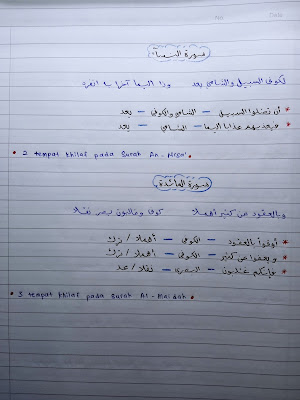 No: Date:
سورة النسآء
لكوفي السبيل والشامي بعد وذا اليما آخرا به انفرد
* أن تضلوا السبيل – الشامي والكوفي – بعد
* فيعذبهم عذابا أليما – الشامي – بعد
• 2 tempat khilaf pada Surah An-Nisa' •
سورة المائدة
وبالعقود عن كثير أهملا كوف وغالبون بصر نقلا
* أوفوا بالعقود – الكوفي – أهملا / ترك
* ويعفوا عن كثير – الكوفي – أهملا / ترك
* فإنكم غلبون – البصري – نقلا / عد
• 3 tempat khilaf pada Surah Al-Maidah •